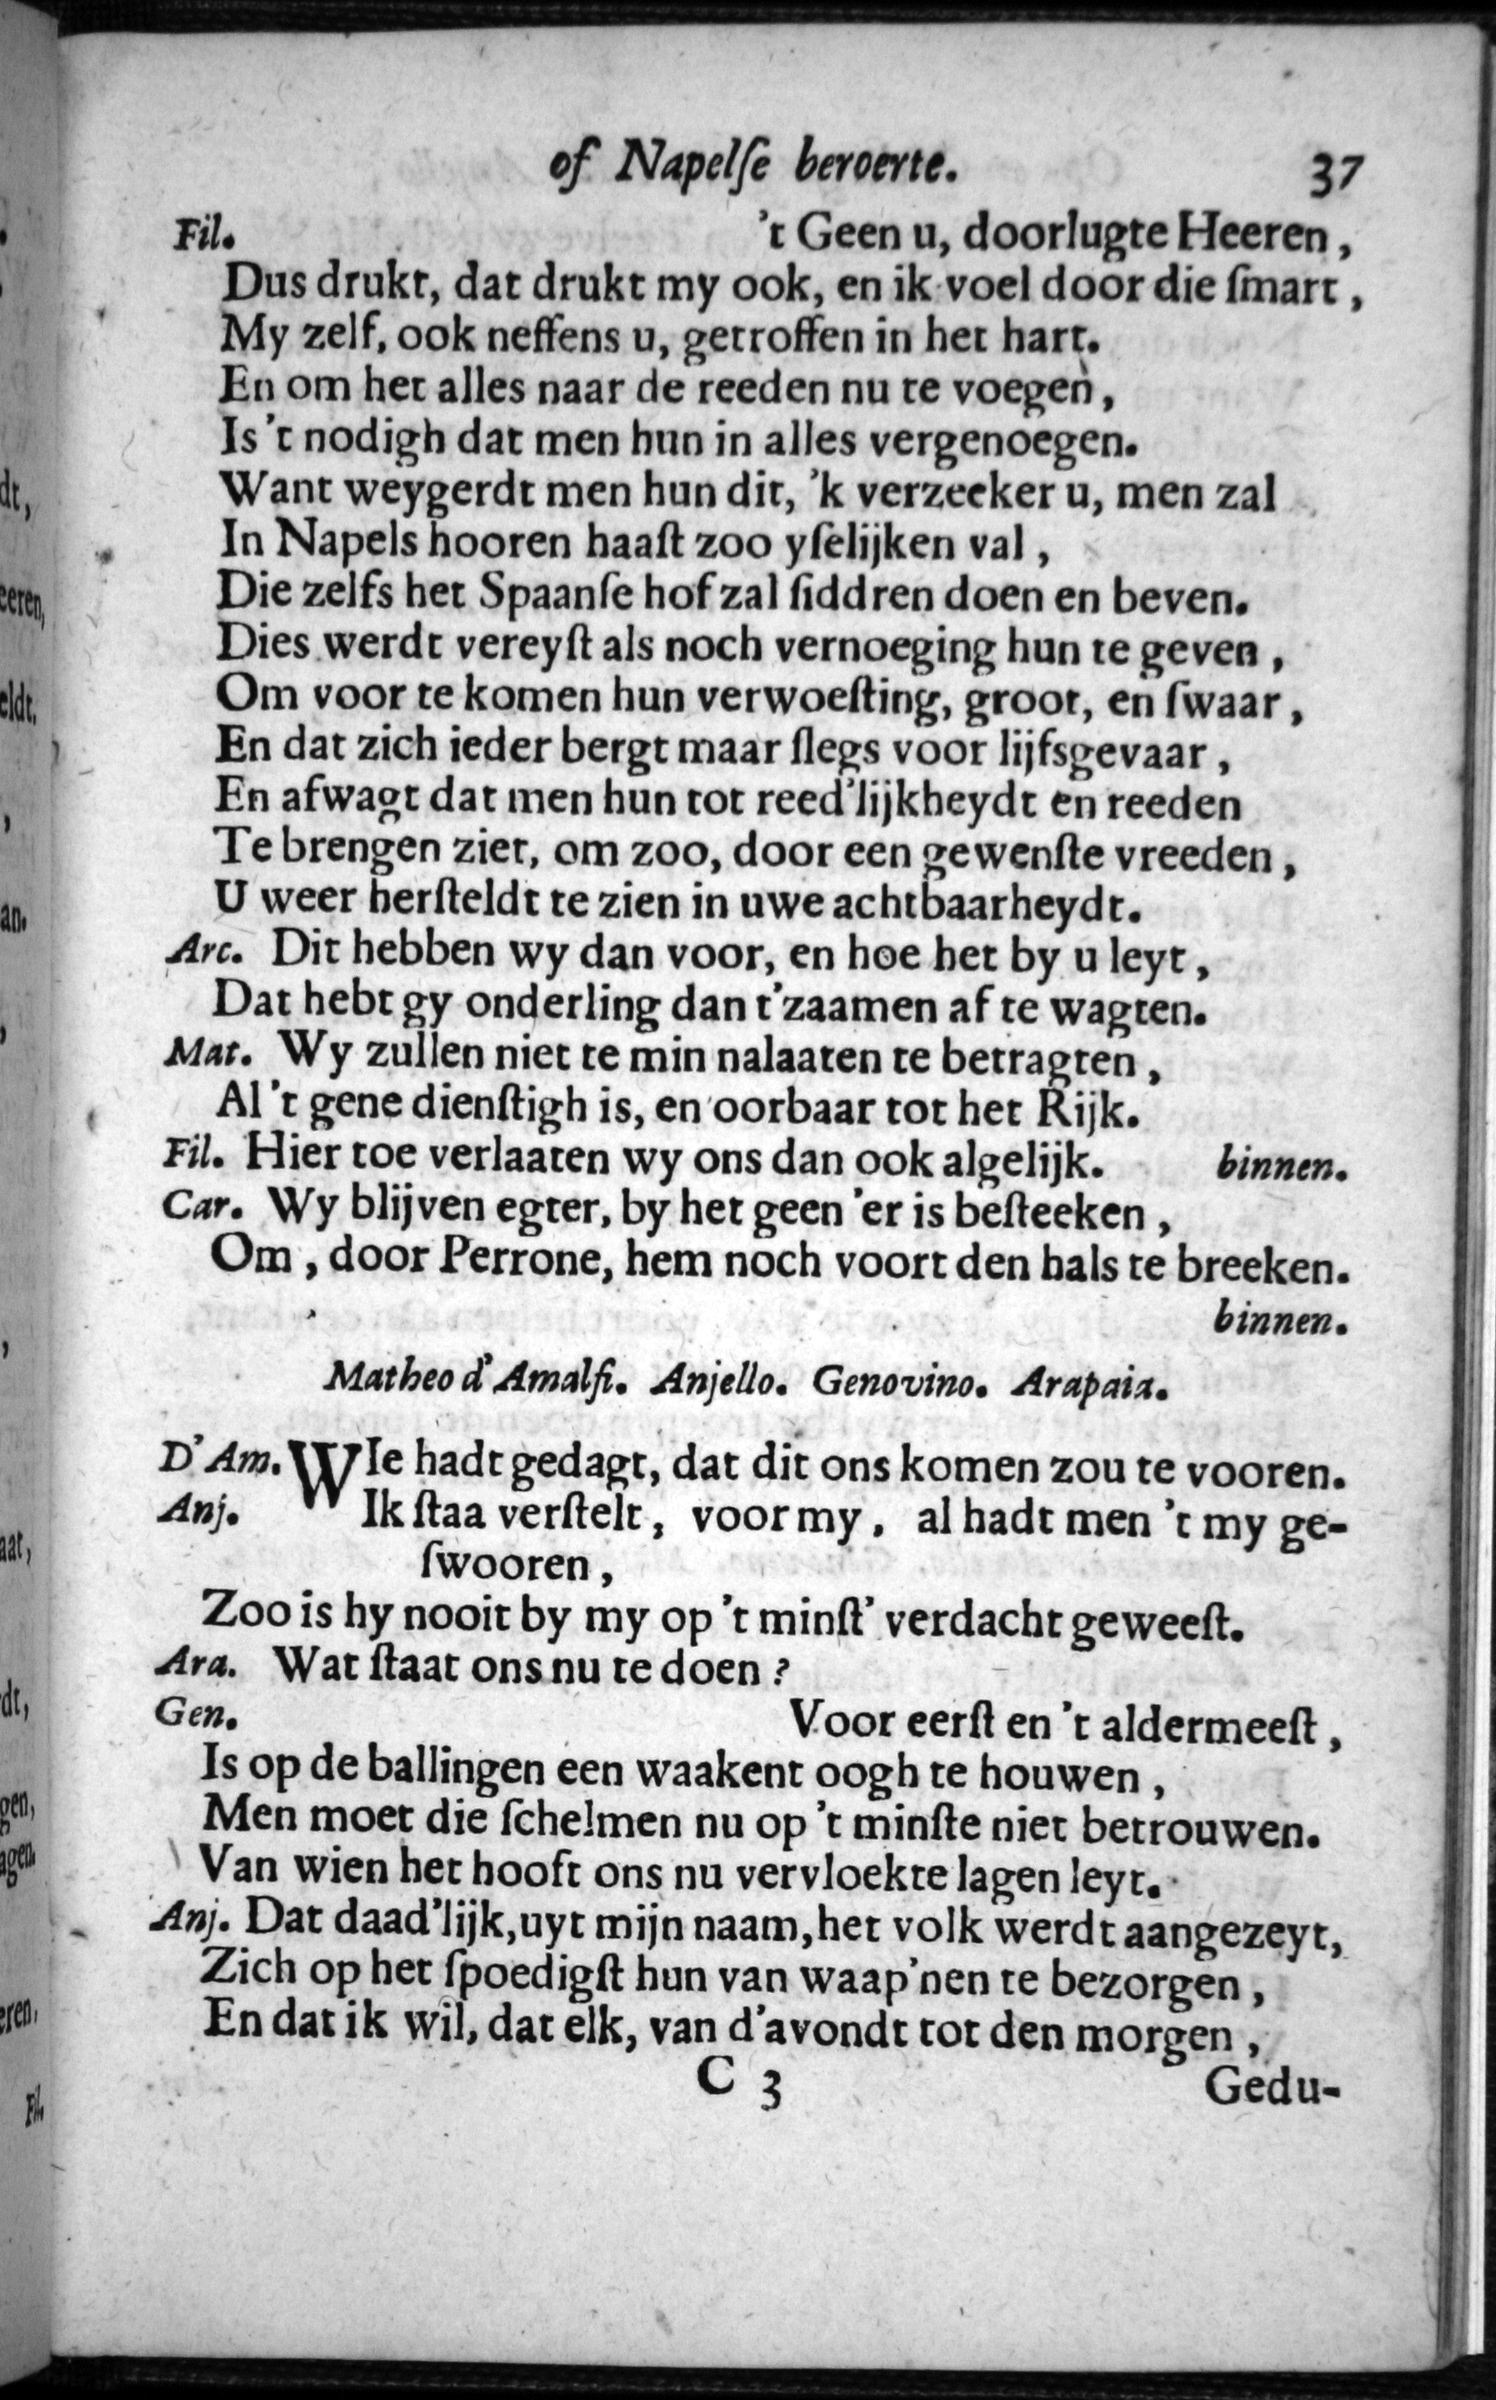 of Napelſe beroerte. 37
Fil. 't Geen u, doorlugte Heeren,
Dus drukt, dat drukt my ook, en ik voel door die ſmart,
My zelf, ook neffens u, getroffen in het hart.
En om het alles naar de reeden nu te voegen,
Is 't nodigh dat men hun in alles vergenoegen.
Want weygerdt men hun dit, 'k verzeeker u, men zal
In Napels hooren haaſt zoo yſelijken val,
Die zelfs het Spaanſe hof zal ſiddren doen en beven.
Dies werdt vereyſt als noch vernoeging hun te geven,
Om voor te komen hun verwoeſting, groot, en ſwaar,
En dat zich ieder bergt maar ſlegs voor lijfsgevaar,
En afwagt dat men hun tot reed'lijkheydt en reeden
Te brengen ziet, om zoo, door een gewenſte vreeden,
U weer herſteldt te zien in uwe achtbaarheydt.
Arc. Dit hebben wy dan voor, en hoe het by u leyt,
Dat hebt gy onderling dan t'zaamen af te wagten.
Mat. Wy zullen niet te min nalaaten te betragten,
Al 't gene dienſtigh is, en oorbaar tot het Rijk.
Fil. Hier toe verlaaten wy ons dan ook algelijk. binnen.
Car. Wy blijven egter, by het geen 'er is beſteeken,
Om, door Perrone, hem noch voort den hals te breeken.
binnen.
Matheo d'Amalfi. Anjello. Genovino. Arapaia.
D'Am. WIe hadt gedagt, dat dit ons komen zou te vooren.
Anj. Ik ſtaa verſtelt, voor my, al hadt men 't my ge-
ſwooren,
Zoo is hy nooit by my op 't minſt' verdacht geweeſt.
Ara. Wat ſtaat ons nu te doen?
Gen. Voor eerſt en 't aldermeeſt,
Is op de ballingen een waakent oogh te houwen,
Men moet die ſchelmen nu op 't minſte niet betrouwen.
Van wien het hooft ons nu vervloekte lagen leyt.
Anj. Dat daad'lijk, uyt mijn naam, het volk werdt aangezeyt,
Zich op het ſpoedigſt hun van waap'nen te bezorgen,
En dat ik wil, dat elk, van d'avondt tot den morgen,
C 3 Gedu-